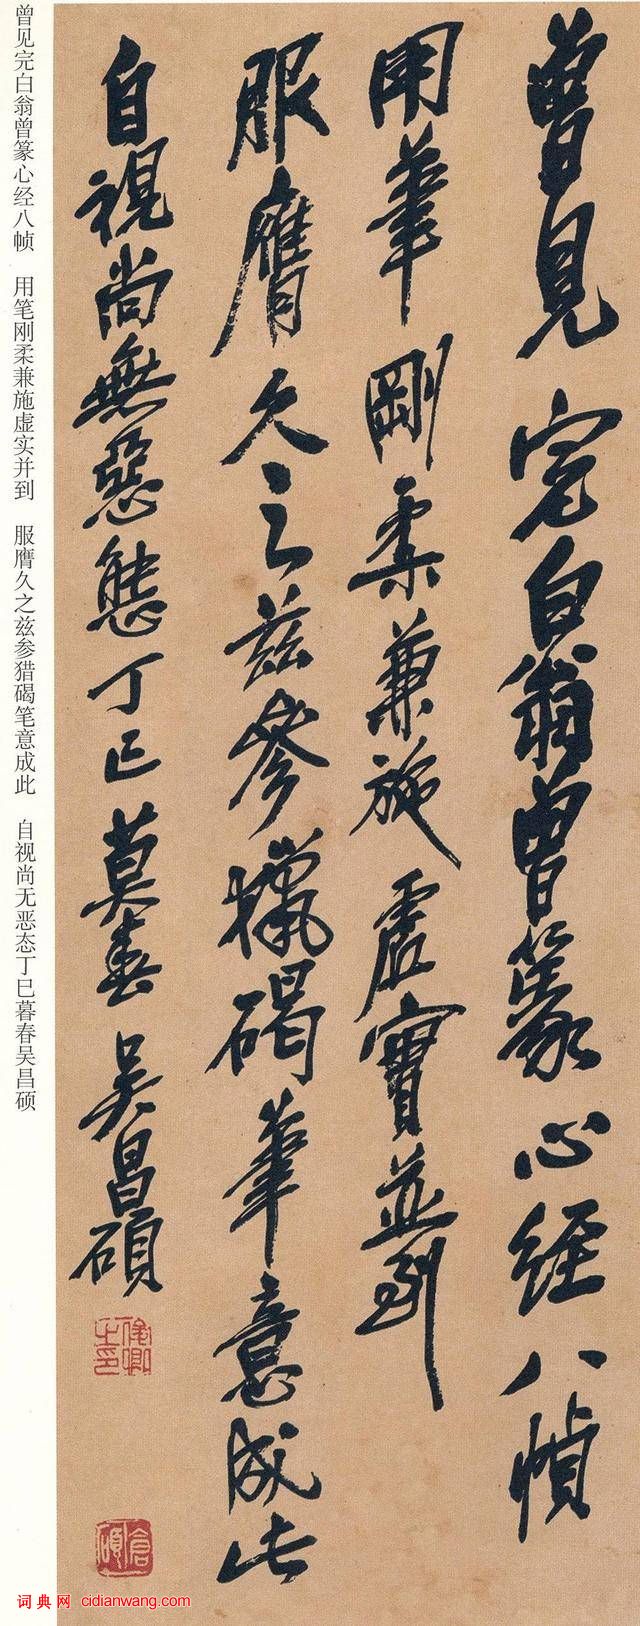 曾見完白翁曾篆心經八幀
用筆剛柔兼施虛實並到
服膺久之茲參獵碣筆意成此
自視尚無惡態丁巳莫春吳昌碩
俊卿之印
倉碩
曾见完白翁曾篆心经八帧 用笔刚柔兼施虚实并到 服膺久之兹参猎碣笔意成此 自视尚无恶态丁巳暮春吴昌硕
词典网 cidianwang.com